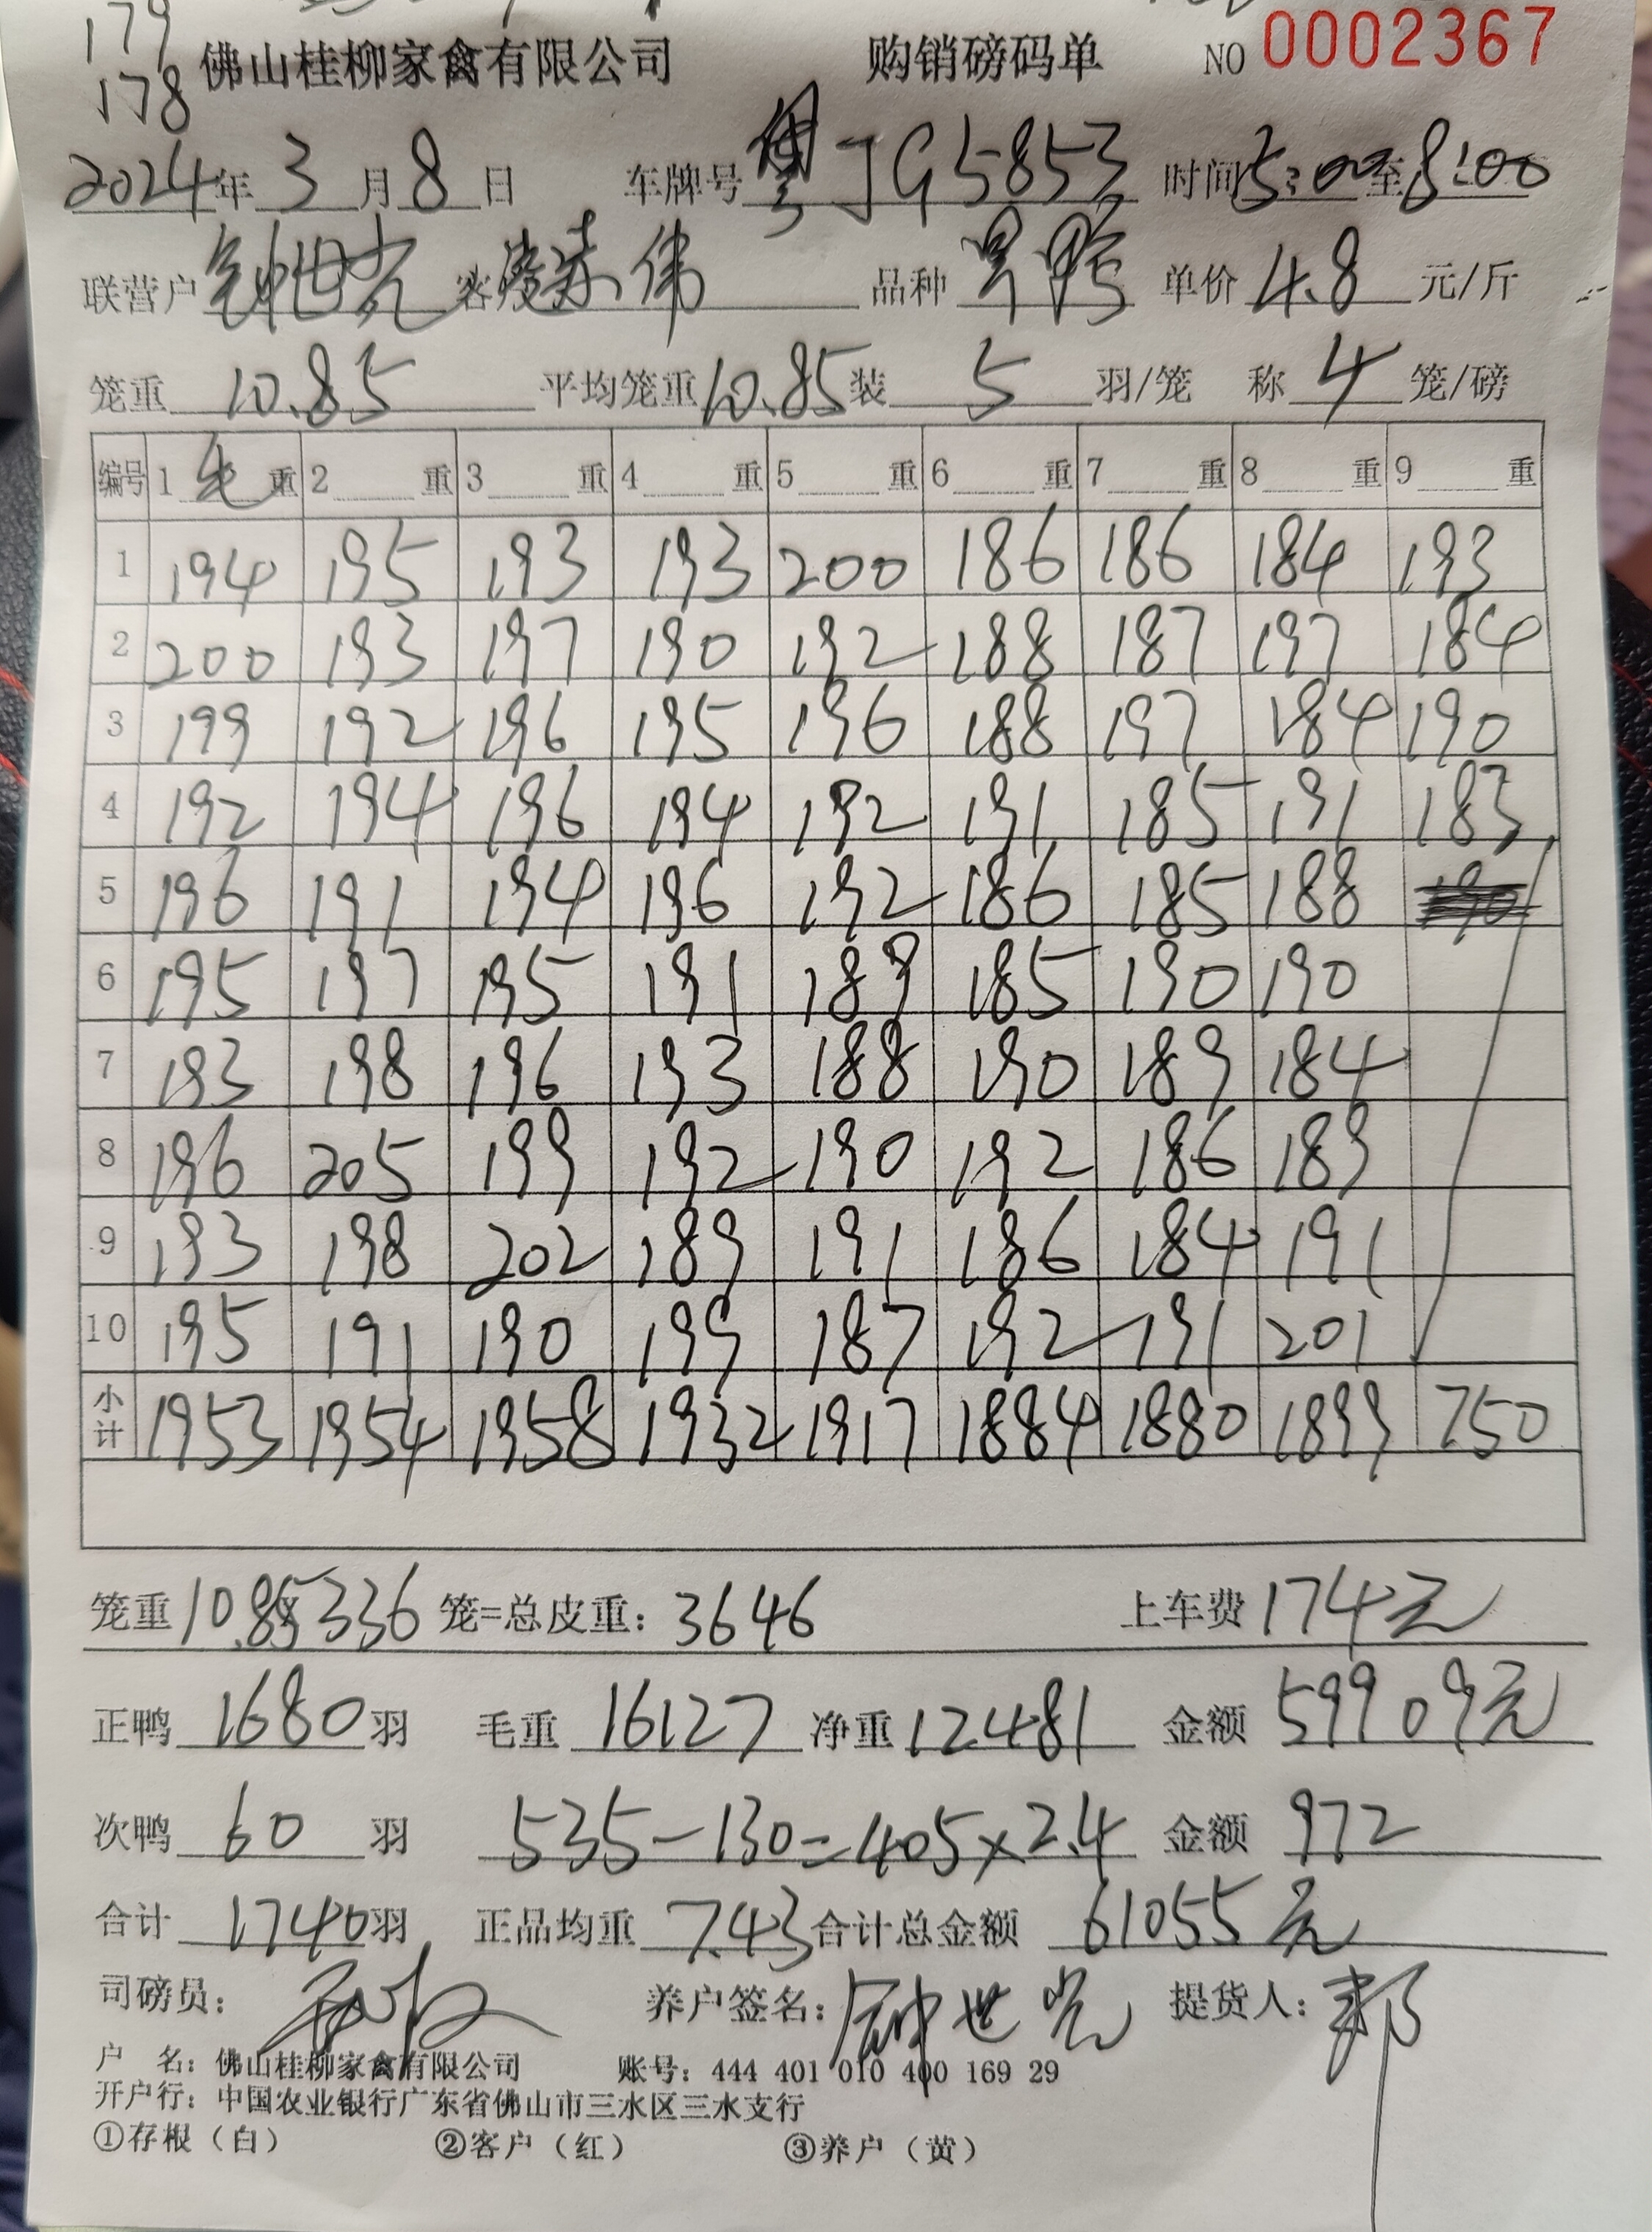 179
178
佛山桂柳家禽有限公司 购销磅码单 NO 0002367
2024年 3月8日 车牌号 粤JG5853 时间 5:00至8:00
联营户 钟世光 客 伟 品种 单价 4.8 元/斤
笼重 10.85 平均笼重 10.85 装 5 羽/笼 称 4 笼/磅
编号 1毛重 2 重 3 重 4 重 5 重 6 重 7 重 8 重 9 重
1 194 195 193 193 200 186 186 184 193
2 200 193 197 190 192 188 187 197 184
3 199 192 196 195 196 188 197 184 190
4 192 194 196 194 192 191 185 191 183
5 196 191 194 196 192 186 185 188
6 195 197 195 191 189 185 190 190
7 193 198 196 193 188 190 189 184
8 196 205 199 192 190 192 186 189
9 193 198 202 189 191 186 184 191
10 195 191 190 199 187 192 191 201
小计 1953 1954 1958 1932 1917 1884 1880 1899 750
笼重 10.85 336 笼=总皮重: 3646 上车费 174元
正鸭 1680 羽 毛重 16127 净重 12481 金额 59909元
次鸭 60 羽 535-130=405×2.4 金额 972
合计 1740羽 正品均重 7.43 合计总金额 61055元
司磅员: 养户签名: 钟世光 提货人: 邦
户 名: 佛山桂柳家禽有限公司 账号: 444 401 010 400 169 29
开户行: 中国农业银行广东省佛山市三水区三水支行
①存根（白） ②客户（红） ③养户（黄）